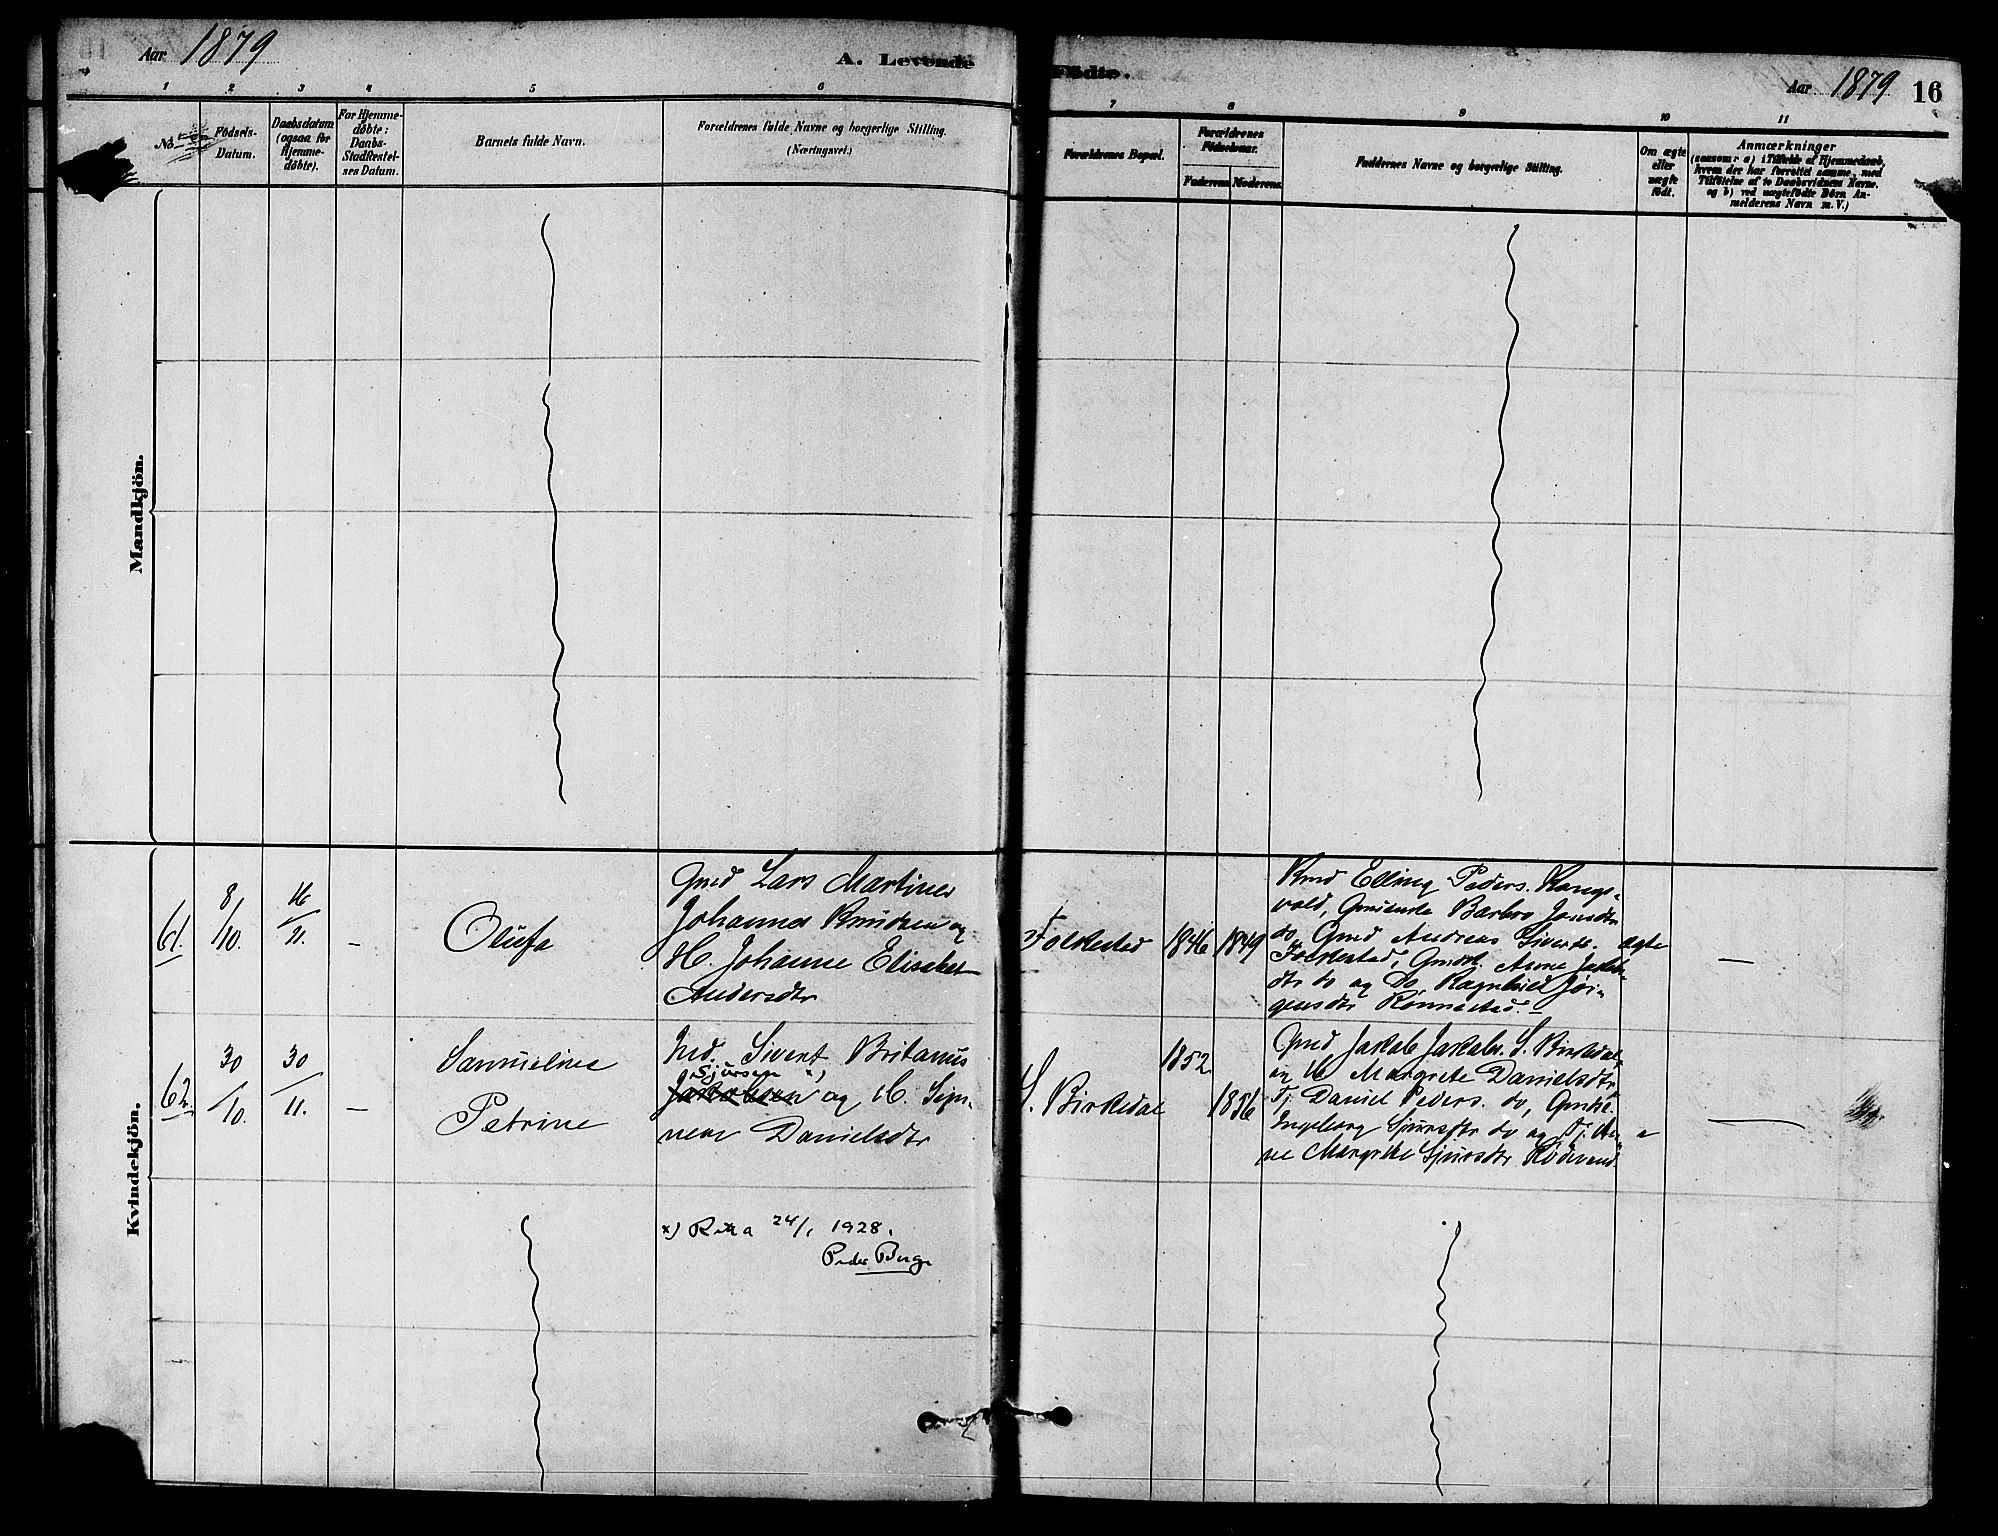 Aar 1879
A. Levende
Födte.
Aar 1879
16
1
2
3
4
5
6
7
8
9
10
11
No.
Födsels-
Datum.
Daabsdatum
(ogsaa for
Hjemme-
döbte).
For Hjemme-
döbte:
Daabs-
Stadfæstel-
ses Datum.
Barnets fulde Navn.
Forældrenes fulde Navne og borgerlige Stilling.
(Næringsvei.)
Forældrenes Bopæl.
Forældrenes
Födselsaar.
Faderens.
Moderens.
Faddernes Navne og borgerlige Stilling.
Om ægte
eller
uægte
födt.
Anmærkninger
(saasom: a) i Tilfælde af Hjemmedaab,
hvem der har forrettet samme, med
Tilföielse af to Daabsvidners Navne,
og b) ved uægtefödte Börn An-
melderens Navn m. V.)
Mandkjön.
Kvindekjön.
61.
8/10.
16/11.
-
Olufa
Gmd Lars Martinus
Johannes Knudsen og
H. Johanne Elisabet
Andersdtr
Folkestad
1846
1849
Kmd Elling Peders. Kongs-
vold, Gmkende Barbro Jonsdtr
do, Gmd Andreas Siverts.
Folkestad, Gmdt. Anne Jakob-
dtr do og Do Ragnhild Jör-
gensdtr Rönnestad.
ægte
-
62.
30/10.
30/11.
-
Samueline
Petrine
Ind. Sivert Britanus
Sjursen x)
Jakobsen og H. Sign-
nea Danielsdtr
S. Birkedal
1852
1856
Gmd Jakob Jakobs. S. Birkedal
og H. Margrete Danielsdtr
Tj. Daniel Peders. do, Gmke.
Ingeborg Sjursdtr do og Tj. An-
ne Margrete Sjursdtr Rödvend.
-
x) Retta 24/1 1928.
Peder Berge